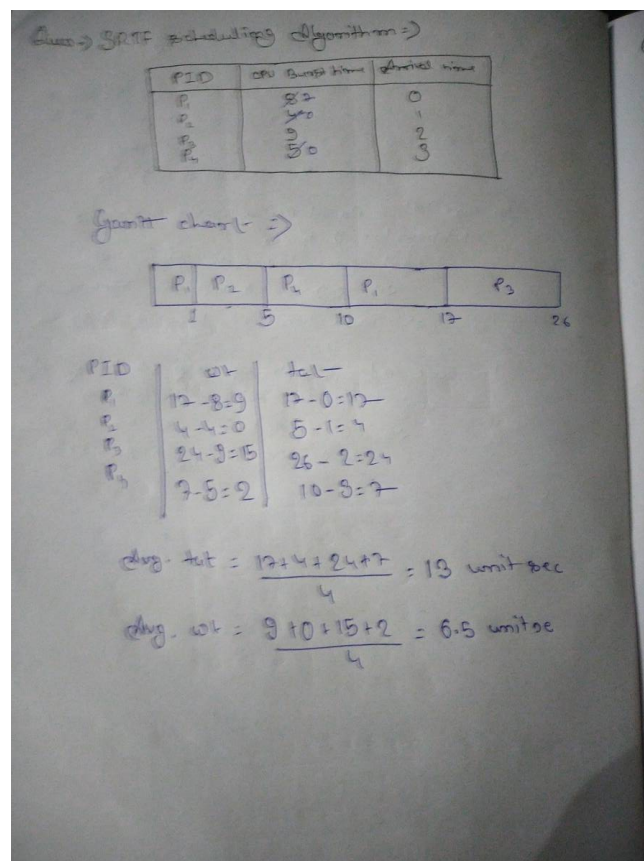 Ques => SRTF scheduling Algorithm =>
PID CPU Burst time Arrival time
P1 8 7 0
P2 4 0 1
P3 9 2
P4 5 0 3
Gantt chart =>
P1 P2 P4 P1 P3
1 5 10 17 26
PID wt tat
P1 17-8=9 17-0=17
P2 4-4=0 5-1=4
P3 24-9=15 26-2=24
P3 7-5=2 10-3=7
Avg. tat = 17+4+24+7 / 4 = 13 unit sec
Avg. wt = 9+0+15+2 / 4 = 6.5 unit se